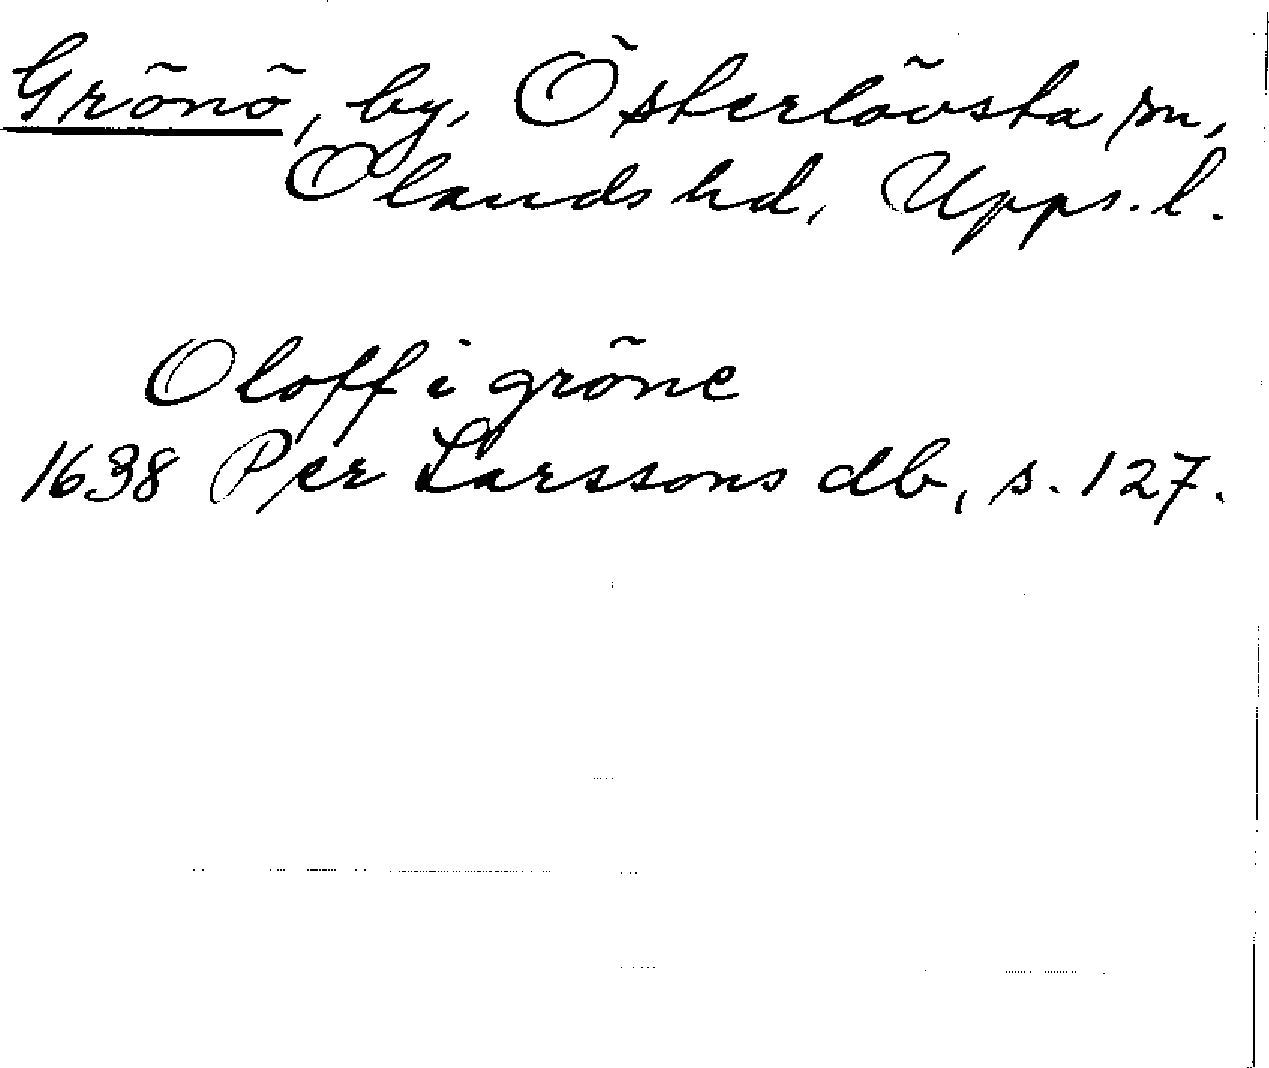 Grönö, by, Österlövsta sn,
Olands hd, Upps. l.
Oloff i gröne
1638 Per Larssons db, s. 127.